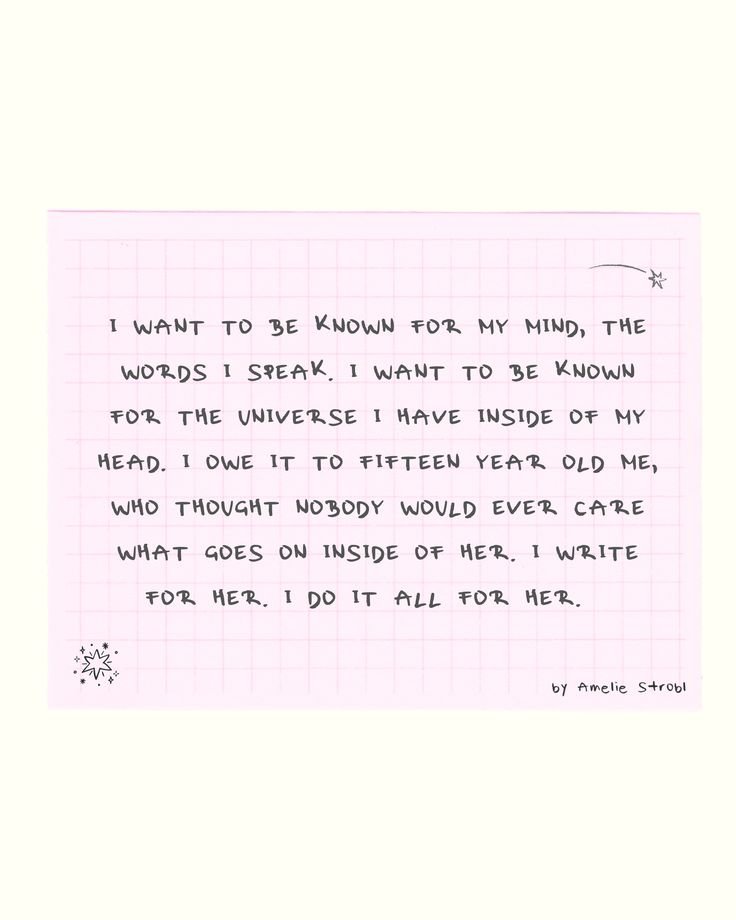 I WANT TO BE KNOWN FOR MY MIND, THE
WORDS I SPEAK. I WANT TO BE KNOWN
FOR THE UNIVERSE I HAVE INSIDE OF MY
HEAD. I OWE IT TO FIFTEEN YEAR OLD ME,
WHO THOUGHT NOBODY WOULD EVER CARE
WHAT GOES ON INSIDE OF HER. I WRITE
FOR HER. I DO IT ALL FOR HER.
by Amelie Strobl